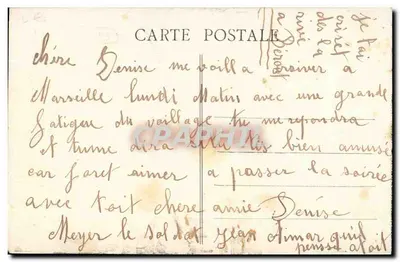 CARTE POSTALE
chére Denise me voilla ariver a
Marseille lundi Matin avec une grande
fatigeu du voillage tu me repondra
et tume dira si tu tis bien amusé
car foret aimer a passer la soirée
avec toit chere amie Denise
Meyer le soldat Jean Aimar quit
pensse a toit
je t'ai
criret
dès la
rivé
a